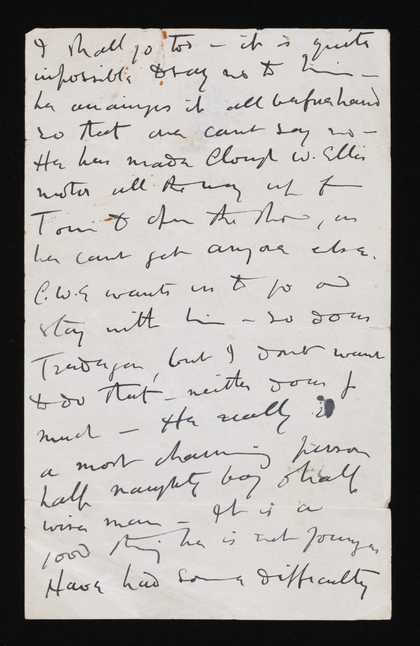 I shall go too – it is quite
impossible to say no to him –
he arranges it all beforehand
so that one cant say no –
He has made Clough W. Ellis
motor all the way up from
to open the show, as
he cant get anyone else.
C.W.E wants us to go and
stay with him – so does
Tredegar, but I dont want
to do that – neither does J
much – He really is
a most charming person
half naughty boy & half
wise man – It is a
good thing he is not younger
Have had some difficulty